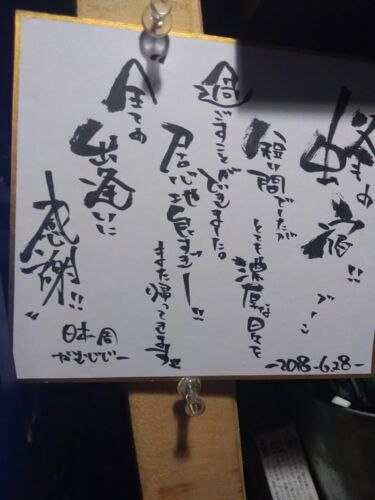 宿!!
ブーン
短い間でしたが
とても濃厚な日々を
過ごすことができました。
居心地良すぎー!!
また帰ってきます!!
全ての
出逢いに
感謝!!
日本一周
がむじじー
-2018.6.28-